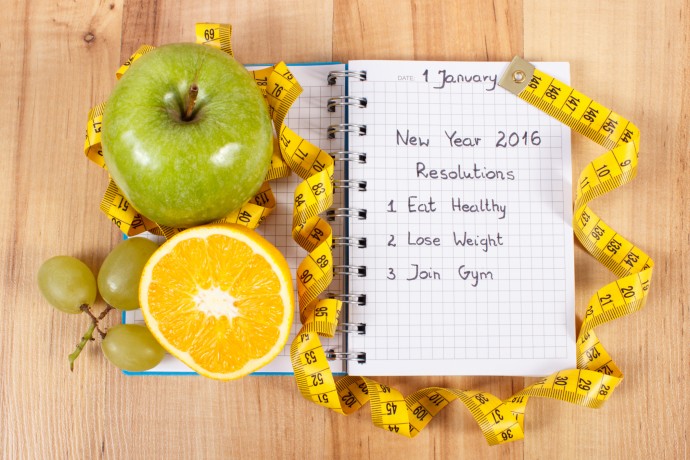 DATE: 1 January
New Year 2016
Resolutions
1 Eat Healthy
2 Lose Weight
3 Join Gym